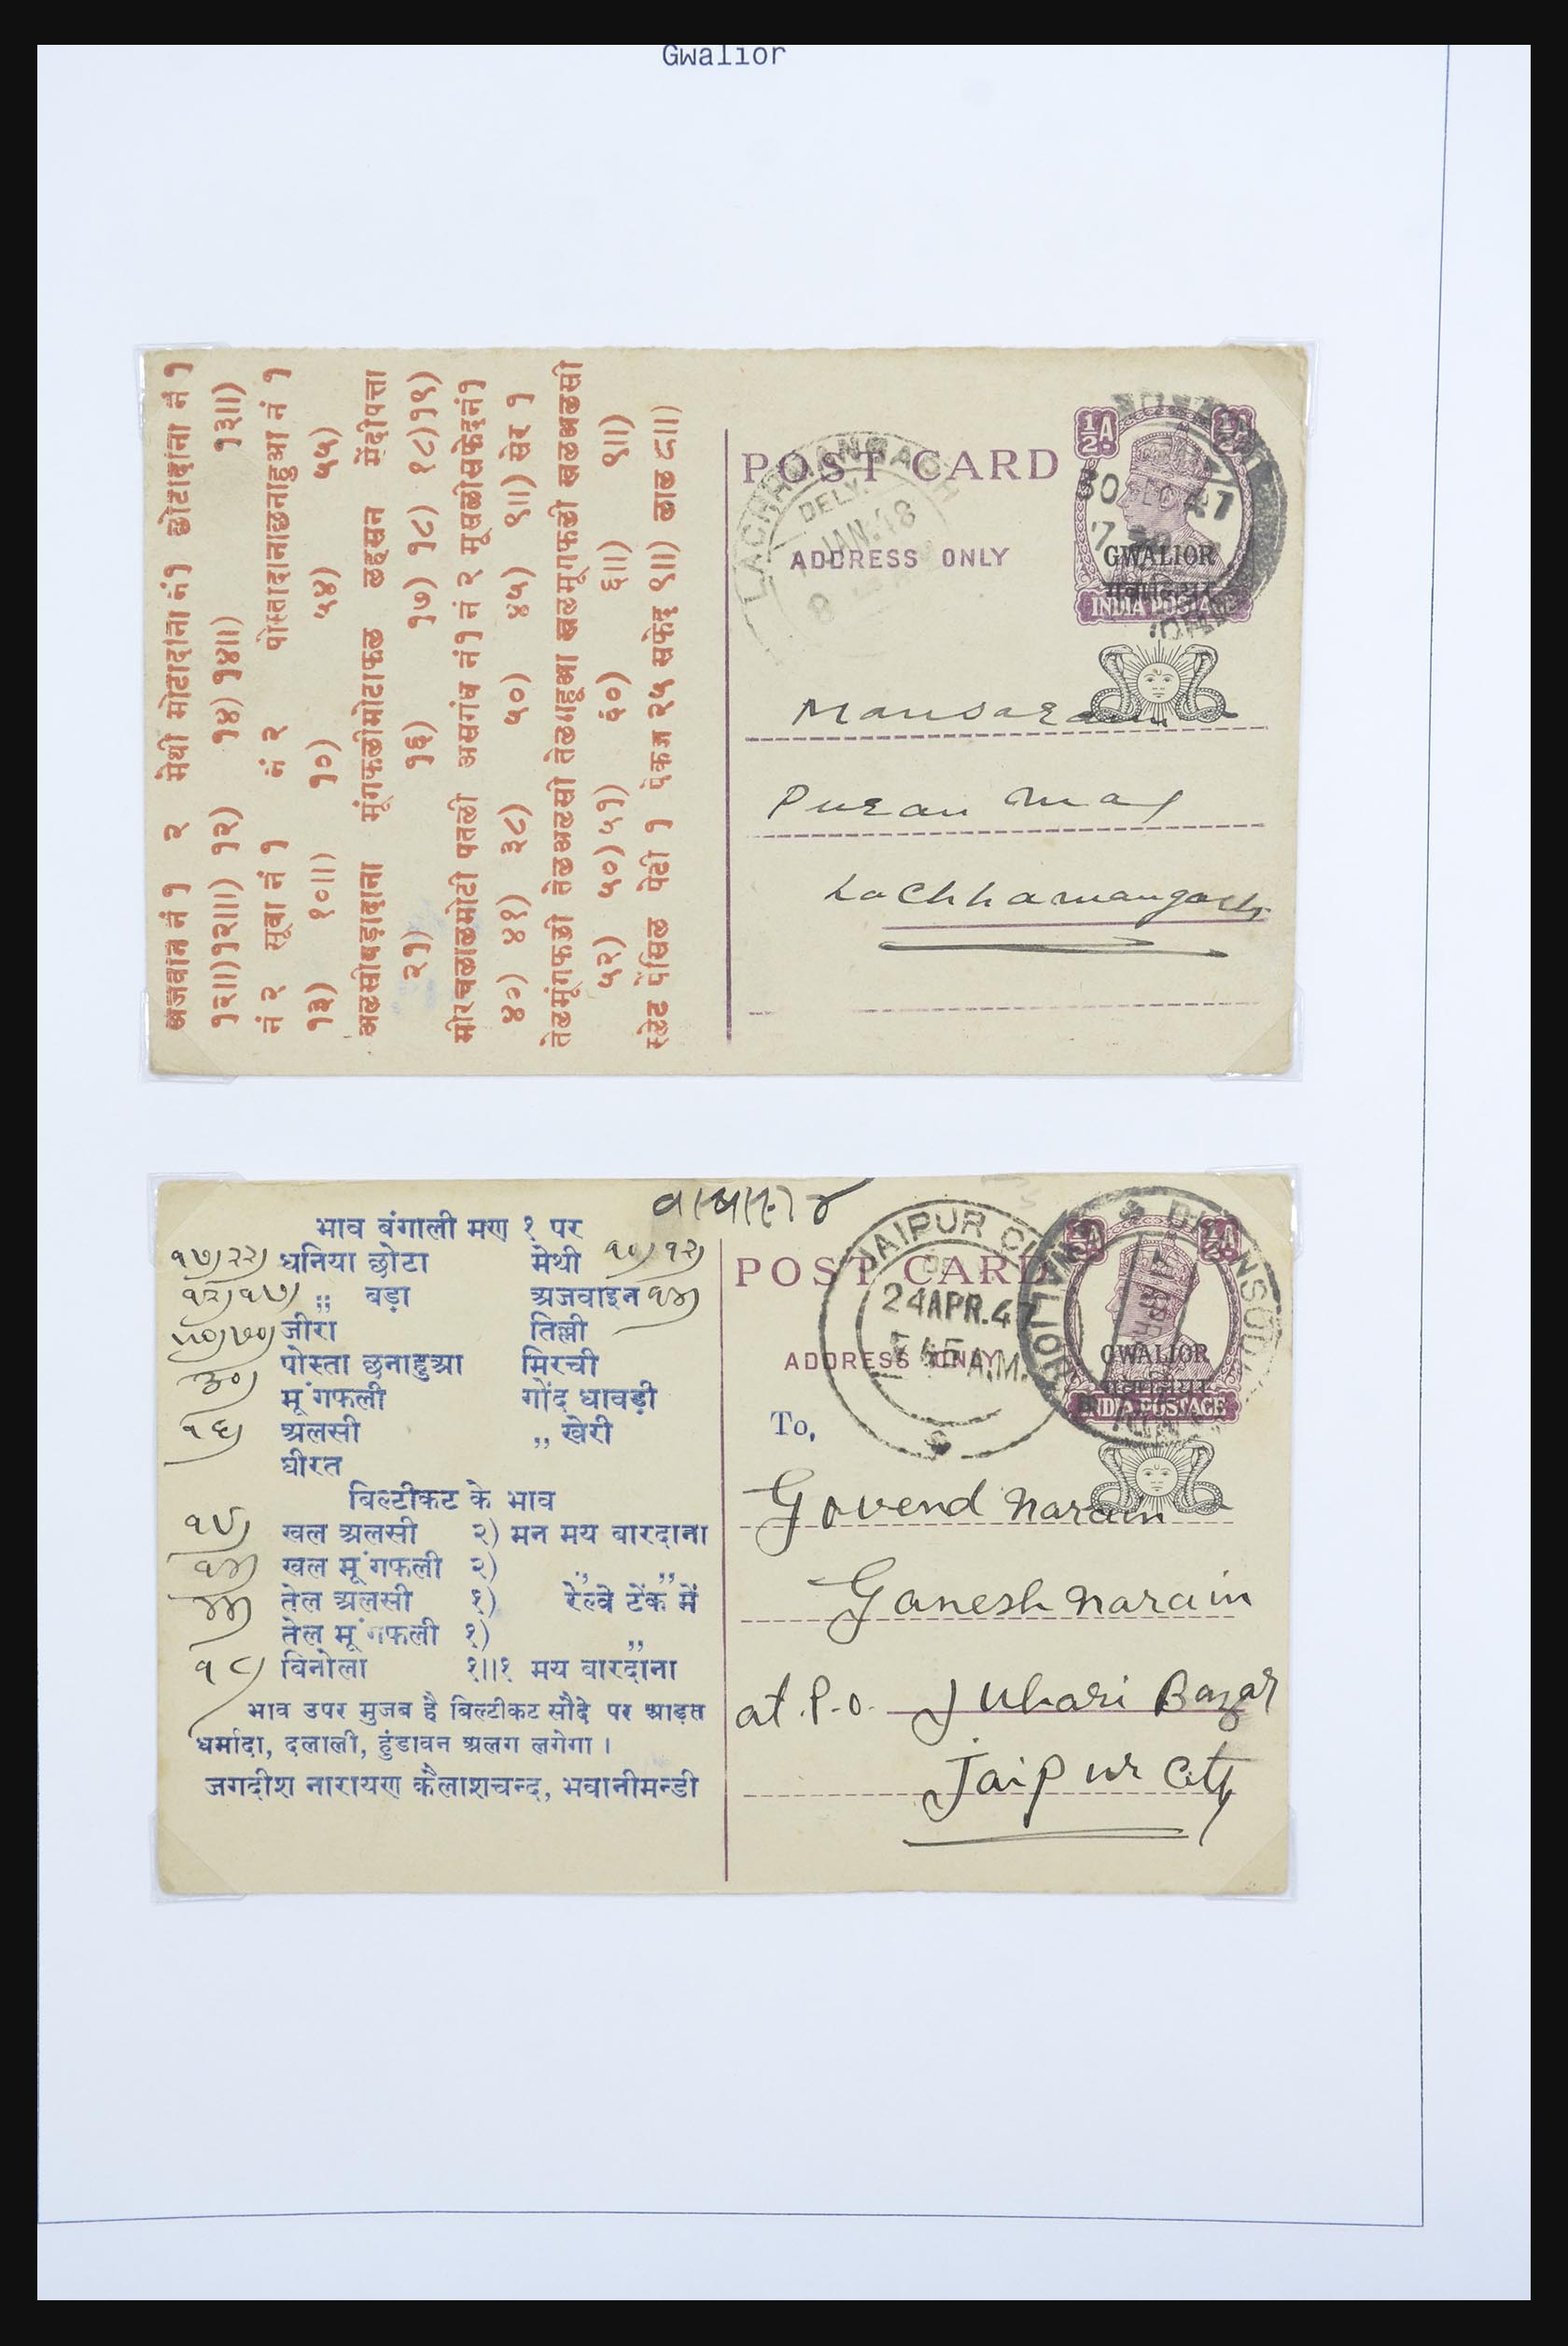 Gwalior
अजवान नं १ २ मेथी मोटादाना नं १ छोटादाना नं १
१२॥)१२॥) १२) १४) १४॥) १३॥)
नं २ सूवा नं १ नं २ पोस्तादानाछनाहुआ नं १
१३) १०॥) १०) ५४) ५५)
अलसीबड़ादाना मूंगफलीमोटाफल लहसन मेंदीपत्ता
२१) १६) १७) १८) १८)१९)
मीरचलालमोटी पतली असगंध नं१ नं २ मूसलीसफेदनं१
४०) ४१) ३८) ५०) ४५) ९॥) सेर १
तेलमूंगफली तेलअलसी
५२) ५०) ५१) ६०) ६॥) ९॥)
स्लेट पेंसिल पेटी १ पेकज २५ सफेद ९॥) लाल ८॥)
POST CARD
ADDRESS ONLY
½A ½A
GWALIOR
गवालियर
INDIA POSTAGE
LACHHMANGARH
DELY.
JAN.48
8
30 DEC 47
7
Mansaram
Puran Mal
Lachhamangarh
भाव बंगाली मण १ पर
१७) २२) धनिया छोटा मेथी १०) १२)
१२) १७) ,, बड़ा अजवाइन १४)
५०) ७०) जीरा तिल्ली
पोस्ता छनाहुआ मिरची
३०) मूंगफली गोंद धावड़ी
१६) अलसी ,, खेरी
घीरत
बिल्टीकट के भाव
१५) खल अलसी २) मन मय बारदाना
१४) खल मूंगफली २) ,, ,,
४४) तेल अलसी १) रेल्वे टेंक में
तेल मूंगफली १) ,,
१८) बिनोला १॥१ मय बारदाना
भाव उपर मुजब है बिल्टीकट सौदे पर आड़त
धर्मादा, दलाली, हुंडावन अलग लगेगा ।
जगदीश नारायण कैलाशचन्द, भवानीमन्डी
POST CARD
ADDRESS ONLY
½A ½A
GWALIOR
गवालियर
INDIA POSTAGE
JAIPUR CITY
DEL
24APR.47
45 A.M.
GWALIOR
To,
Govend Narain
Ganesh Narain
at P.O. Juhari Bazar
Jaipur City